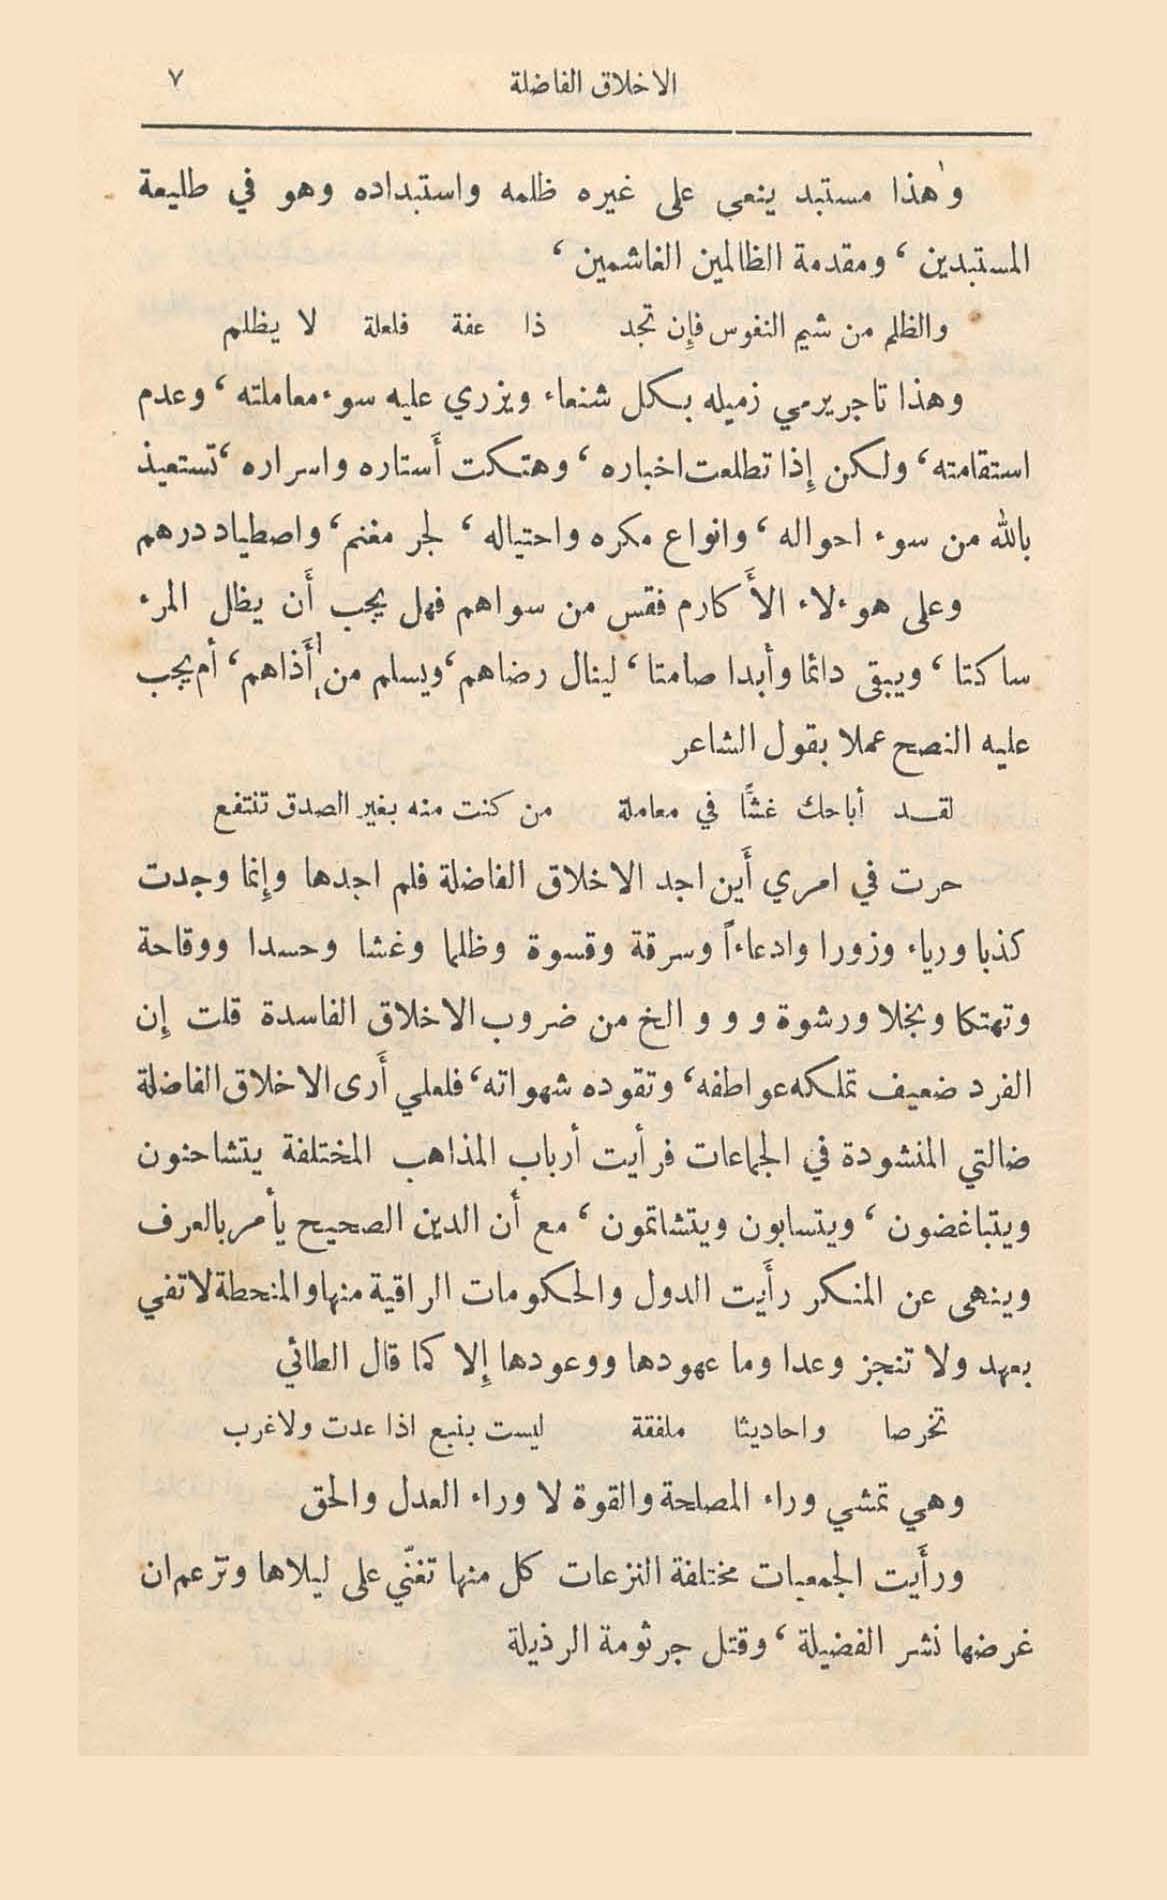 الاخلاق الفاضلة ٧
وهذا مستبد ينعي على غيره ظلمه واستبداده وهو في طليعة
المستبدين ، ومقدمة الظالمين الغاشمين ،
والظلم من شيم النفوس فإن تجد ذا عفة فلعلة لا يظلم
وهذا تاجر يرمي زميله بكل شنعاء ويزري عليه سوء معاملته ، وعدم
استقامته ، ولكن إذا تطلعت اخباره ، وهتكت أستاره واسراره ، تستعيذ
بالله من سوء احواله ، وانواع مكره واحتياله ، لجر مغنم ، واصطياد درهم
وعلى هوءلاء الأكارم فقس من سواهم فهل يجب أن يظل المرء
ساكتا ، ويبقى دائما وأبدا صامتا ، لينال رضاهم ، ويسلم من أذاهم ، أم يجب
عليه النصح عملا بقول الشاعر
لقد أباحك غشًا في معاملة من كنت منه بغير الصدق تنتفع
حرت في امري أين اجد الاخلاق الفاضلة فلم اجدها وإنما وجدت
كذبا ورياء وزورا وادعاءاً وسرقة وقسوة وظلما وغشا وحسدا ووقاحة
وتهتكا وبخلا ورشوة و و و الخ من ضروب الاخلاق الفاسدة قلت إن
الفرد ضعيف تملكه عواطفه ، وتقوده شهواته ، فلعلي أرى الاخلاق الفاضلة
ضالتي المنشودة في الجماعات فرأيت أرباب المذاهب المختلفة يتشاحنون
ويتباغضون ، ويتسابون ويتشاتمون ، مع أن الدين الصحيح يأمر بالعرف
وينهى عن المنكر رأيت الدول والحكومات الراقية منها والمنحطة لا تفي
بعهد ولا تنجز وعدا وما عهودها ووعودها إلا كما قال الطائي
تخرصا واحاديثا ملفقة ليست بنبع اذا عدت ولا غرب
وهي تمشي وراء المصلحة والقوة لا وراء العدل والحق
ورأيت الجمعيات مختلفة النزعات كل منها تغنّي على ليلاها وتزعم ان
غرضها نشر الفضيلة ، وقتل جرثومة الرذيلة